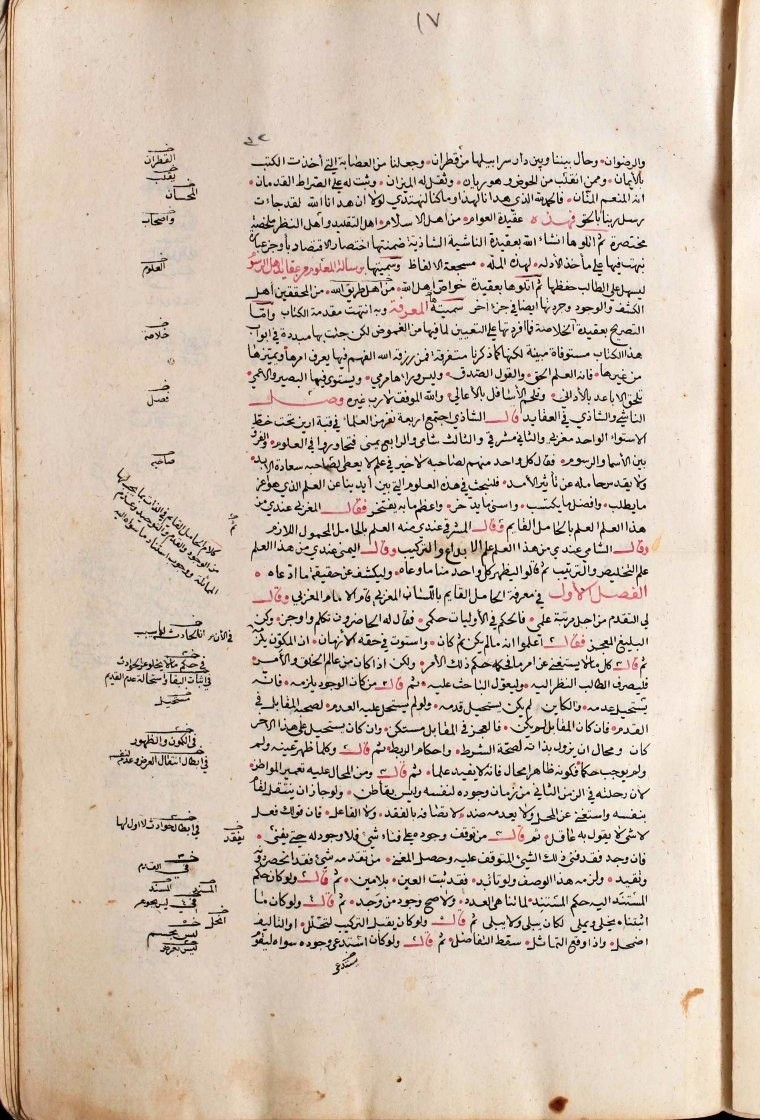 ١٧
والرضوان وحال بيننا وبين دار سرابيلها من قطران وجعلنا من العصابة التي أخذت الكتب
بالأيمان وممن انقلب من الحوض وهو ريان وثقل له الميزان وثبت له على الصراط القدمان
انه المنعم المنان فالحمد لله الذي هدانا لهذا وما كنا لنهتدي لولا أن هدانا الله لقد جاءت
رسل ربنا بالحق فهذه عقيدة العوام من اهل الاسلام اهل التقليد واهل النظر ملخصة
مختصرة ثم اتلوها انشاء الله بعقيدة الناشية الشادية ضمنتها اختصار الاقتصاد بأوجز عبارة
نبهت فيها على مأخذ الأدلة لهذه الملة مسجعة الالفاظ وسميتها برسالة المعلوم من عقايد اهل الرسوم
ليسهل على الطالب حفظها ثم اتلوها بعقيدة خواص اهل الله من اهل طريق الله من المحققين اهل
الكشف والوجود وجردتها ايضا في جزء آخر سميته المعرفة وبه انتهت مقدمة الكتاب واما
التصريح بعقيدة الخلاصة فما افردتها على التعيين لما فيها من الغموض لكن جئت بها مبددة في ابواب
هذا الكتاب مستوفاة مبينة لكنها كما ذكرنا متفرقة فمن رزقه الله الفهم فيها يعرف امرها ويميزها
من غيرها فانه العلم الحق والقول الصدق وليس وراءها مرمى ويستوي فيها البصير والاعمى
تلحق الاباعد بالأداني وتلحم الأسافل بالأعالي والله الموفق لا رب غيره وصل
الناشي والشادي في العقايد قال الشادي اجتمع اربعة نفر من العلماء في قبة ارين تحت خط
الاستواء الواحد مغربي والثاني مشرقي والثالث شامي والرابع يمني فتحاوروا في العلوم والفرق
بين الأسماء والرسوم فقال كل واحد منهم لصاحبه لا خير في علم لا يعطي لصاحبه سعادة الأبد
ولا يقدس حامله عن تأثير الأمد فلنبحث في هذه العلوم التي بين أيدينا عن العلم الذي هو أعز
ما يطلب وافضل ما يكتسب واسنى ما يدخر واعظم ما به يفتخر فقال المغربي عندي من
هذا العلم العلم بالحامل القايم وقال المشرقي عندي منه العلم بالحامل المحمول اللازم
وقال الشامي عندي من هذا العلم علم الابداع والتركيب وقال اليمني عندي من هذا العلم
علم التخليص والترتيب ثم قالوا ليظهر كل واحد منا ما وعاه وليكشف عن حقيقة ما ادعاه
الفصل الأول في معرفة الحامل القايم باللسان المغربي قام الامام المغربي وقال
لي التقدم من اجل مرتبة علمي فالحكم في الأوليات حكمي فقال له الحاضرون تكلم واوجز وكن
البليغ المعجز فقال اعلموا انه ما لم يكن ثم كان واستوت في حقه الأزمان ان المكون يلزمه
ثم قال كل ما لا يستغني عن امر ما فحكمه حكم ذلك الأمر ولكن اذا كان من عالم الخلق والأمر
فليصرف الطالب النظر اليه وليعول الباحث عليه ثم قال من كان الوجود يلزمه فانه
يستحيل عدمه والكاين ولم يكن يستحيل قدمه ولو لم يستحل عليه العدم لصحبه المقابل في
القدم فان كان المقابل لم يكن فالعجز في المقابل مستكن وان كان يستحيل على هذا الآخر
كان ومحال ان يزول بذاته لصحة الشرط واحكام الربط ثم قال وكلما ظهر عينه ولم
ولم يوجب حكما فكونه ظاهرا محال فانه لا يفيد علما ثم قال ومن المحال عليه تعمير المواطن
لأن رحلته في الزمن الثاني من زمان وجوده لنفسه وليس بقاطن ولو جاز ان ينتقل لقام
بنفسه واستغنى عن المحل ولا يعدمه ضد لاتصافه بالفقد ولا الفاعل فان قولك فعل
لا شيء لا يقول به عاقل ثم قال من توقف وجوده على فناء شيء فلا وجود له حتى يفنى
فان وجد فقد فنى ذلك الشيء المتوقف عليه وحصل المعنى من تقدمه شيء فقد انحصر دونه
وتقيد ولزمه هذا الوصف ولو تابد فقد ثبت العين بلامين ثم قال ولو كان حكم
المستند اليه حكم المستند لما تناهى العدد ولا صح وجود من وجد ثم قال ولو كان ما
اثبتناه يخلي ويملي لكان يبلى ولا يبلي ثم قال ولو كان يقبل التركيب لتحلل او التاليف
اضمحل واذا وقع التماثل سقط التفاضل ثم قال ولو كان استدعى وجوده سواه ليقوم
يستدعي
القطران
يقلب
المحسان
واصحاب
العلوم
خلاصة
فصل
صاحبه
كلام الحامل القايم
في الأزمان الحادث له سبب
في حكم ما لا يخلو عن الحوادث
في اثبات البقاء واستحالة عدم القديم
مستحيل
في الكون والظهور
في ابطال انتقال العرض وعدمه لنفسه
في ابطال حوادث لا اول لها
يفقد
في القدم
ليس بجوهر
المحل
ليس بجسم
ليس بعرض